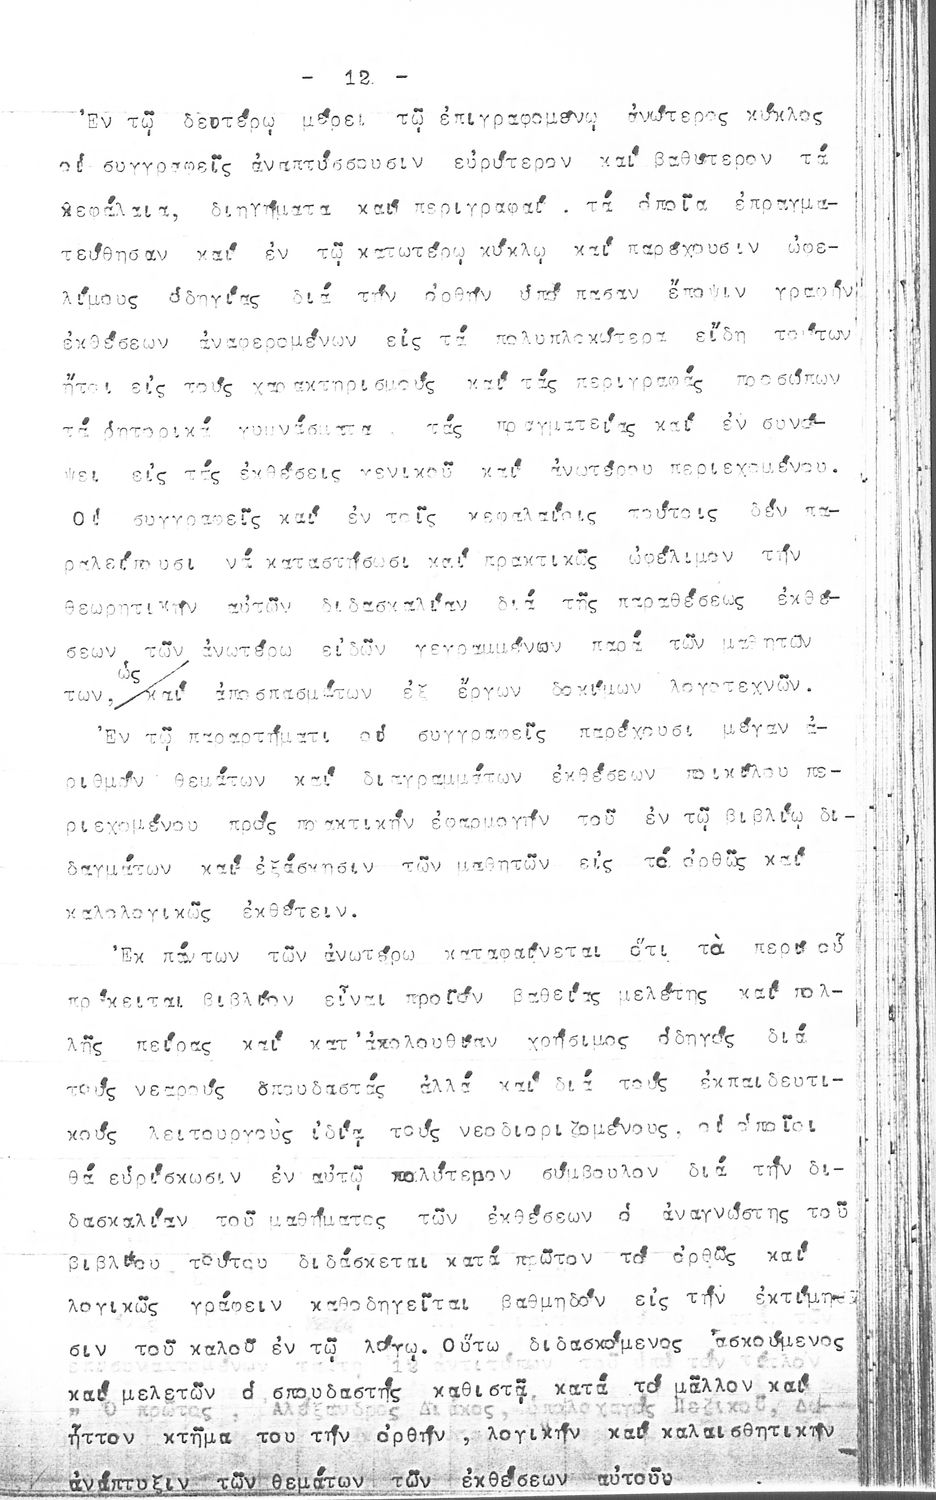 - 12 -
Ἐν τῷ δευτέρῳ μέρει τῷ ἐπιγραφομένῳ ἀνώτερος κύκλος
οἱ συγγραφεῖς ἀναπτύσσουσιν εὐρύτερον καί βαθύτερον τά
κεφάλαια, διηγήματα καί περιγραφαί. τά ὁποῖα ἐπραγμα-
τεύθησαν καί ἐν τῷ κατωτέρῳ κύκλῳ καί παρέχουσιν ὠφε-
λίμους ὁδηγίας διά τήν ὀρθήν ὑπό πασαν ἔποψιν γραφήν
ἐκθέσεων ἀναφερομένων εἰς τά πολυπλοκώτερα εἴδη τούτων
ἤτοι εἰς τούς χαρακτηρισμούς καί τάς περιγραφάς προσώπων
τά ῥητορικά γυμνάσματα. τάς πραγματείας καί ἐν συνό-
ψει εἰς τάς ἐκθέσεις γενικοῦ καί ἀνωτέρου περιεχομένου.
Οἱ συγγραφεῖς καί ἐν τοῖς κεφαλαίοις τούτοις δέν πα-
ραλείπουσι νά καταστήσωσι καί πρακτικῶς ὠφέλιμον τήν
θεωρητικήν αὐτῶν διδασκαλίαν διά τῆς παραθέσεως ἐκθέ-
σεων τῶν ἀνωτέρω εἰδῶν γεγραμμένων παρά τῶν μαθητῶν
των, ὡς καί ἀποσπασμάτων ἐξ ἔργων δοκίμων λογοτεχνῶν.
Ἐν τῷ παραρτήματι οἱ συγγραφεῖς παρέχουσι μέγαν ἀ-
ριθμόν θεμάτων καί διαγραμμάτων ἐκθέσεων ποικίλου πε-
ριεχομένου πρός πρακτικήν ἐφαρμογήν τοῦ ἐν τῷ βιβλίῳ δι-
δαγμάτων καί ἐξάσκησιν τῶν μαθητῶν εἰς τό ὀρθῶς καί
καλολογικῶς ἐκθέτειν.
Ἐκ πάντων τῶν ἀνωτέρω καταφαίνεται ὅτι τὸ περί οὗ
πρόκειται βιβλίον εἶναι προϊόν βαθείας μελέτης καί πολ-
λῆς πείρας καί κατ'ἀκολουθίαν χρήσιμος ὁδηγός διά
τούς νεαρούς σπουδαστάς ἀλλά καί διά τούς ἐκπαιδευτι-
κούς λειτουργοὺς ἰδίᾳ τούς νεοδιοριζομένους, οἱ ὁποῖοι
θά εὑρίσκωσιν ἐν αὐτῷ πολύτερον σύμβουλον διά τήν δι-
δασκαλίαν τοῦ μαθήματος τῶν ἐκθέσεων ὁ ἀναγνώστης τοῦ
βιβλίου τούτου διδάσκεται κατά πρῶτον τό ὀρθῶς καί
λογικῶς γράφειν καθοδηγεῖται βαθμηδόν εἰς τήν ἐκτίμη-
σιν τοῦ καλοῦ ἐν τῷ λόγῳ. Οὕτω διδασκόμενος ἀσκούμενος
καί μελετῶν ὁ σπουδαστής καθιστᾷ κατά τό μᾶλλον καί
ἧττον κτῆμα του τήν ὀρθήν, λογικήν καί καλαισθητικήν
ἀνάπτυξιν τῶν θεμάτων τῶν ἐκθέσεων αὐτοῦ